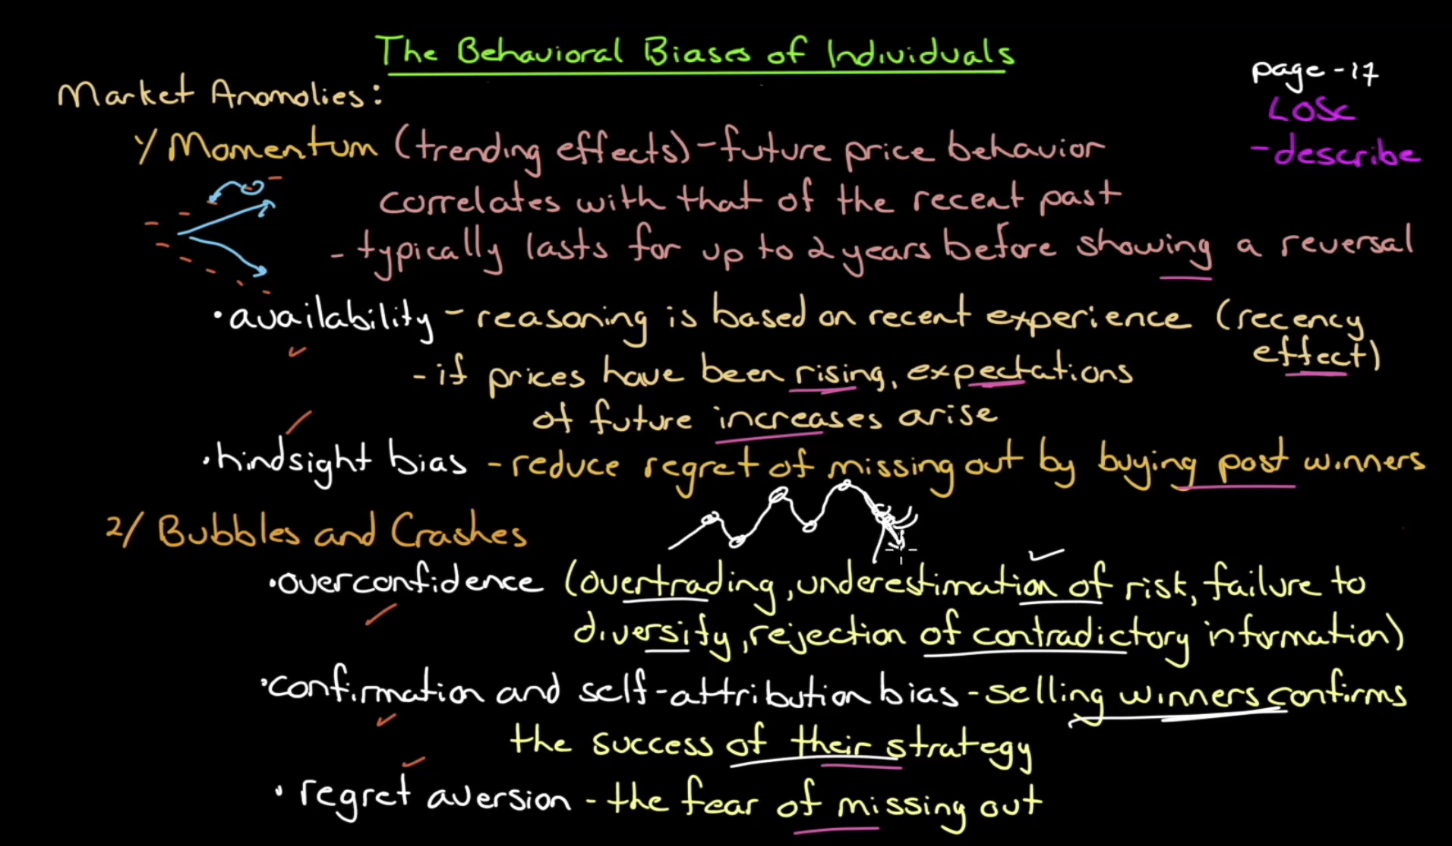 The Behavioral Biases of Individuals
page-17
LOSc
-describe
Market Anomolies:
1/ Momentum (trending effects) - future price behavior
correlates with that of the recent past
- typically lasts for up to 2 years before showing a reversal
• availability - reasoning is based on recent experience (recency
effect)
- if prices have been rising, expectations
of future increases arise
• hindsight bias - reduce regret of missing out by buying post winners
2/ Bubbles and Crashes
• overconfidence (overtrading, underestimation of risk, failure to
diversify, rejection of contradictory information)
• confirmation and self-attribution bias - selling winners confirms
the success of their strategy
• regret aversion - the fear of missing out